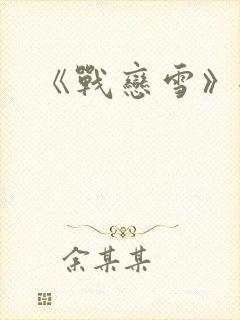 《戰戀雪》
余某某